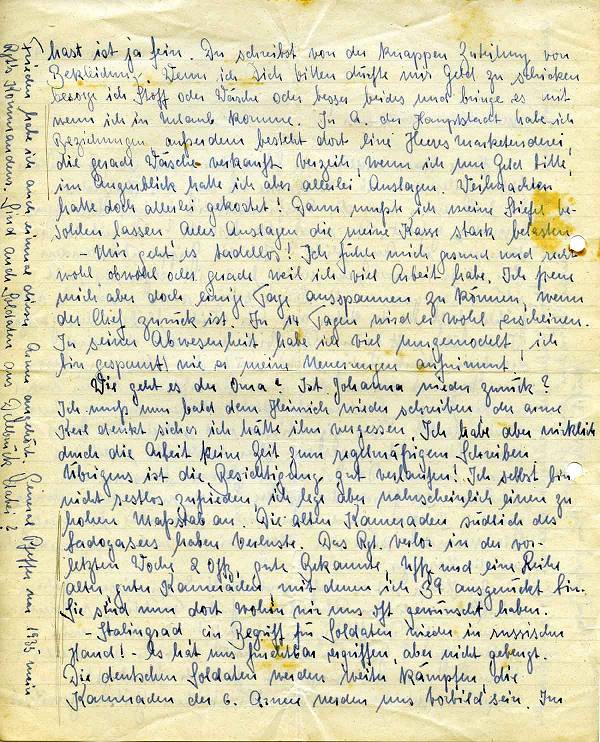 hast ist ja fein. Du schreibst von der knappen Zuteilung von
Bekleidung. Wenn ich Dich bitten dürfte mir Geld zu schicken
besorge ich Stoff oder Wäsche oder besser beides und bringe es mit
wenn ich in Urlaub komme. In A. der Hauptstadt habe ich
Beziehungen, außerdem besteht dort eine Heeresmarketenderei,
die gerade Wäsche verkauft. Verzeih, wenn ich um Geld bitte,
im Augenblick hatte ich aber allerlei Auslagen. Weihnachten
hatte doch allerlei gekostet! Dann mußte ich meine Stiefel be-
sohlen lassen. Alles Auslagen die meine Kasse stark belasten.
- Mir geht es tadellos! Ich fühle mich gesund und recht
wohl obwohl oder gerade weil ich viel Arbeit habe. Ich freue
mich aber doch einige Tage ausspannen zu können, wenn
der Chef zurück ist. In 14 Tagen wird er wohl erscheinen.
In seiner Abwesenheit habe ich viel umgemodelt, ich
bin gespannt wie er meine Neuerungen aufnimmt.
Wie geht es der Oma? Ist Johanna wieder zurück?
Ich muß nun bald dem Heinrich wieder schreiben, der arme
Kerl denkt sicher ich hätte ihn vergessen. Ich habe aber wirklich
durch die Arbeit keine Zeit zum regelmäßigen Schreiben.
Übrigens ist die Besichtigung gut verlaufen! Ich selbst bin
nicht restlos zufrieden, ich lege aber wahrscheinlich einen zu
hohen Maßstab an. Die alten Kameraden südlich des
Ladogasees haben Verluste. Das Rgt. verlor in der vor-
letzten Woche 8 Offz. gute Bekannte, Uffz. und eine Reihe
alter guter Kameraden mit denen ich 39 ausgerückt bin.
Sie sind nun dort wohin wir uns oft gewünscht haben.
- Stalingrad, ein Begriff für Soldaten wieder in russischer
Hand! - Es hat uns furchtbar ergriffen, aber nicht gebeugt.
Die deutschen Soldaten werden weiter kämpfen, die
Kameraden der 6. Armee werden uns Vorbild sein. Im
Frieden habe ich auch einmal dieser Armee angehört. General Pfeffer war 1935 mein
Rgts Kommandeur. Sind auch Soldaten aus G. dabei?